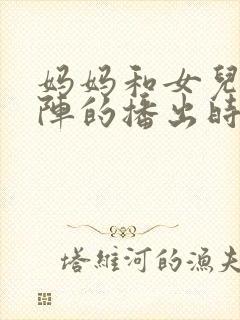 妈妈和女兒
陣的播出時
塔維河的漁夫